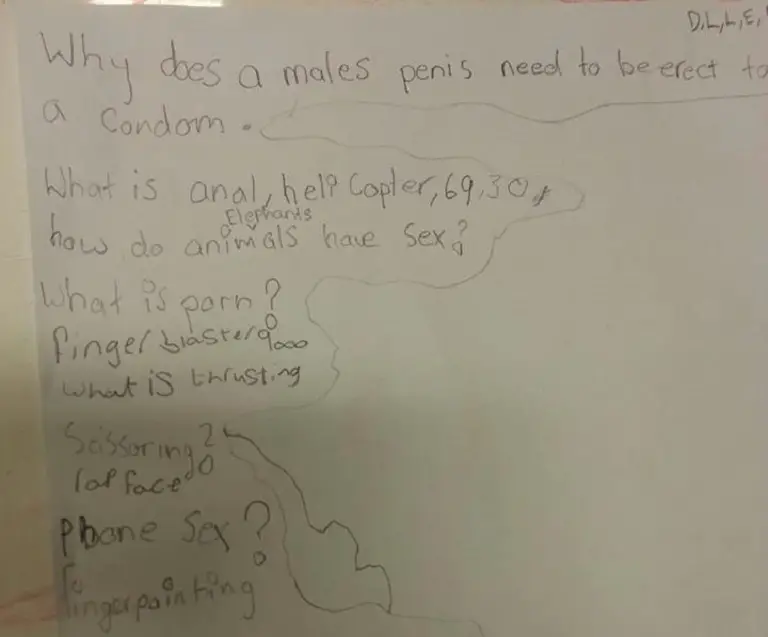 D,L,L,E,
Why does a males penis need to be erect to
a condom.
What is anal, help Copter, 69, 30,
Elephants
how do animals have sex?
What is porn?
fingerblaster9000
what is thrusting
Scissoring?
lol face
Phone Sex?
fingerpainting